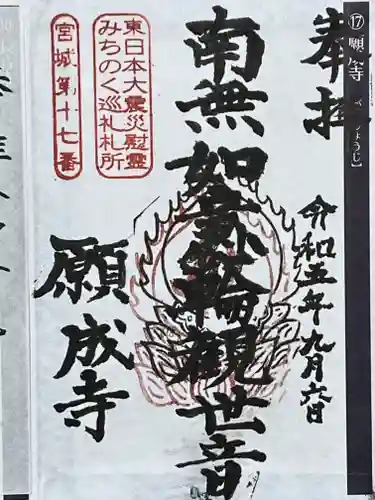 ⑰願成寺
ょうじ】
奉拝
令和五年九月六日
南無如意輪観世音
東日本大震災慰霊
みちのく巡礼札所
宮城第十七番
願成寺